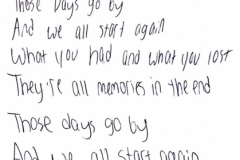 Those Days go by
And we all start again
What you had and what you lost
They're all memories in the end
Those days go by
And we all start again